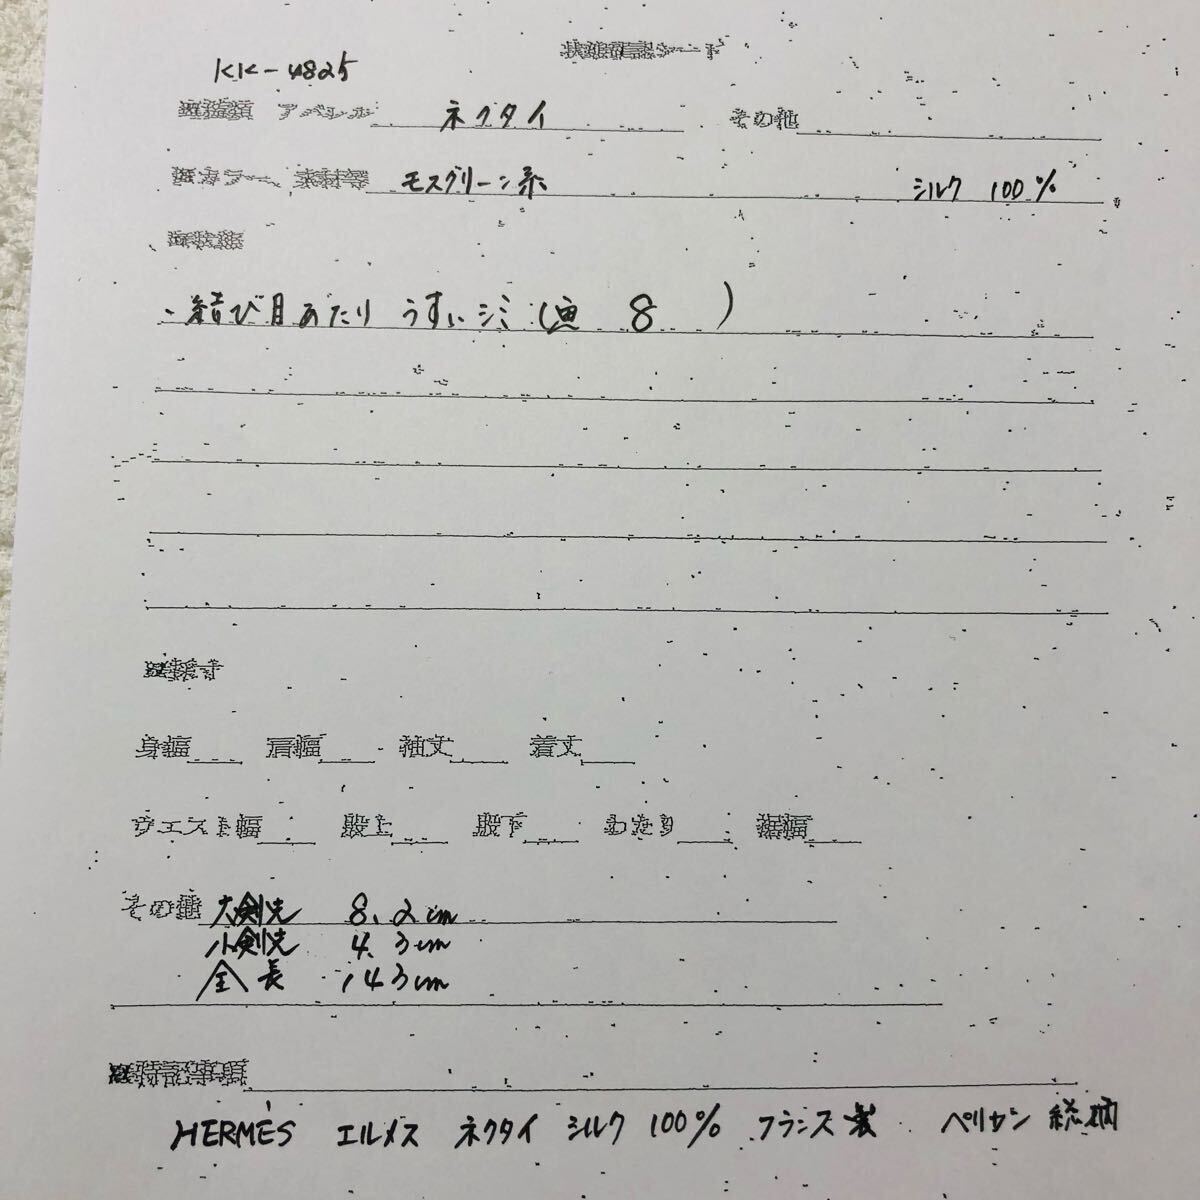 状態確認シート
KK-4825
種類 アパレル ネクタイ その他
カラー、素材等 モスグリーン系 シルク 100%
状態
・結び目あたり うすいシミ (画 8 )
採寸
身幅 肩幅 袖丈 着丈
ウエスト幅 股上 股下 わたり 裾幅
その他 大剣先 8.2cm
小剣先 4.3cm
全長 143cm
特記事項
HERMÈS エルメス ネクタイ シルク 100% フランス製 ペリカン 総柄